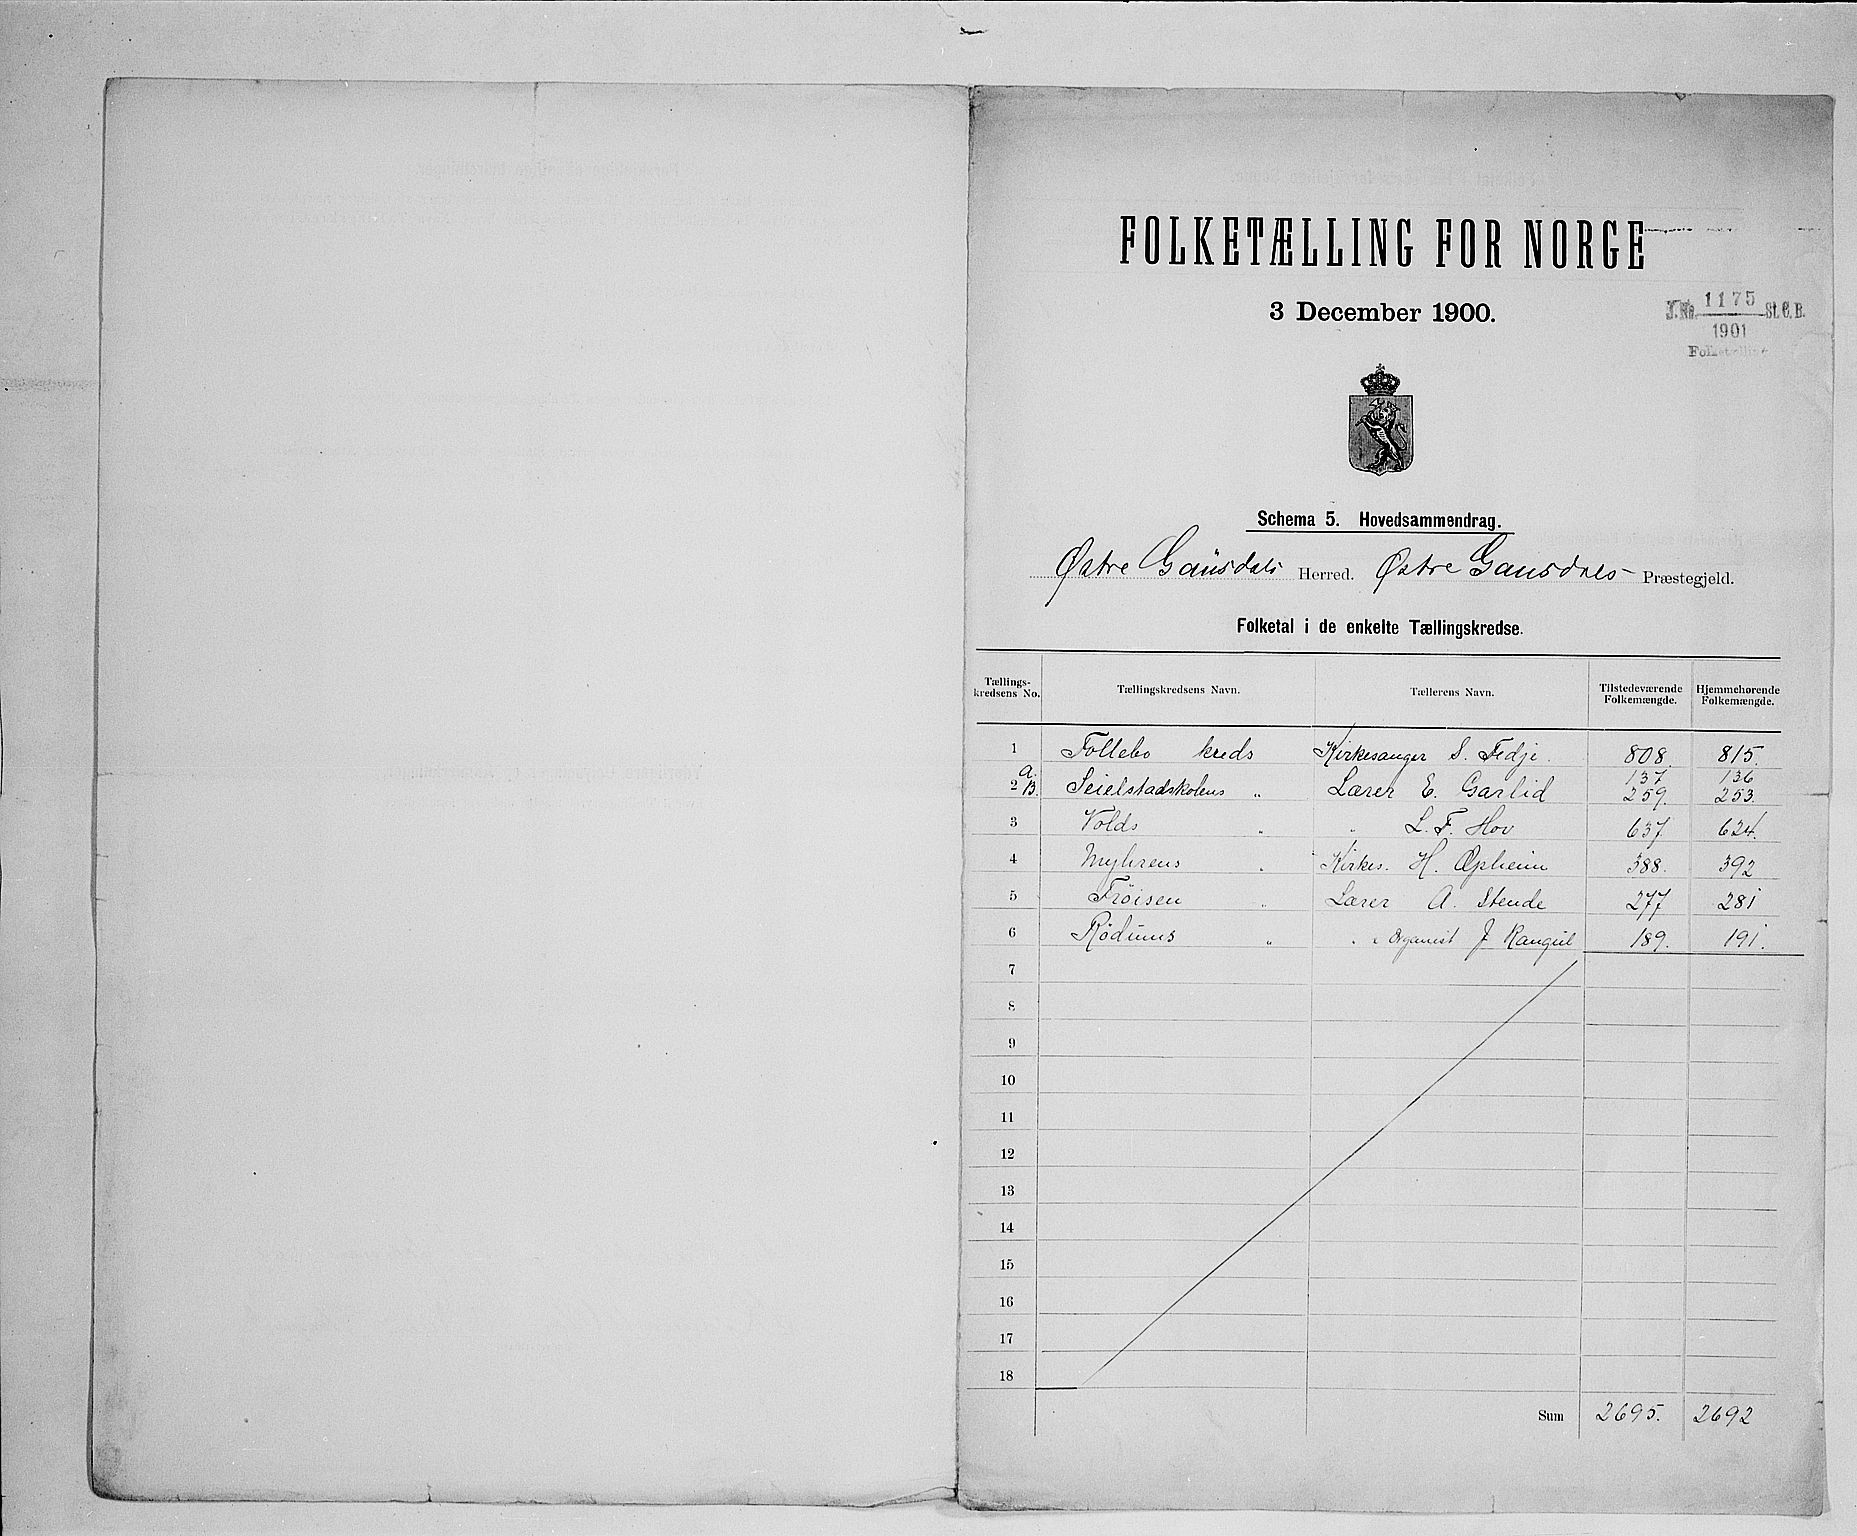 FOLKETÆLLING FOR NORGE
3 December 1900.
J.No. 1175 St. C. B.
1901
Folketælling
Schema 5. Hovedsammendrag.
Østre Gausdals Herred. Østre Gausdals Præstegjeld.
Folketal i de enkelte Tællingskredse.
Tællings-kredsens No. Tællingskredsens Navn. Tællerens Navn. Tilstedeværende Folkemængde. Hjemmehørende Folkemængde.
1 Follebo kreds Kirkesanger S. Fedje. 808. 815.
a. 137 136
2 B. Seielstadskolens " Lærer E. Garlid 259. 253.
3 Volds " " L. F. Hov 637 624.
4 Myhrens " Kirkes. H. Opheim 388. 392
5 Frøisen " Lærer A. Stende 277 281
6 Rødums " " Organist J 189. 191.
7
8
9
10
11
12
13
14
15
16
17
18
Sum 2695. 2692